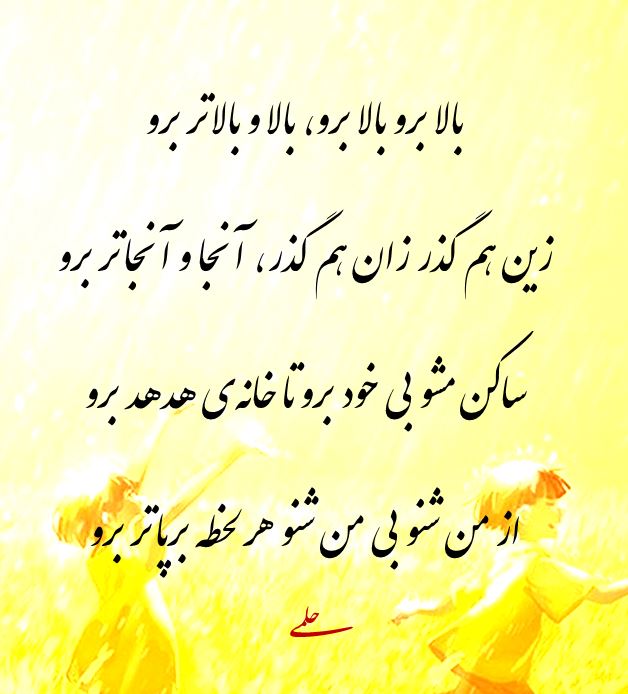 بالا برو بالا برو، بالا و بالاتر برو
زین هم گذر زان هم گذر، آنجا و آنجاتر برو
ساکن مشو بی خود برو تا خانه‌ی هدهد برو
از من شنو بی من شنو هر لحظه برپاتر برو
حلمی